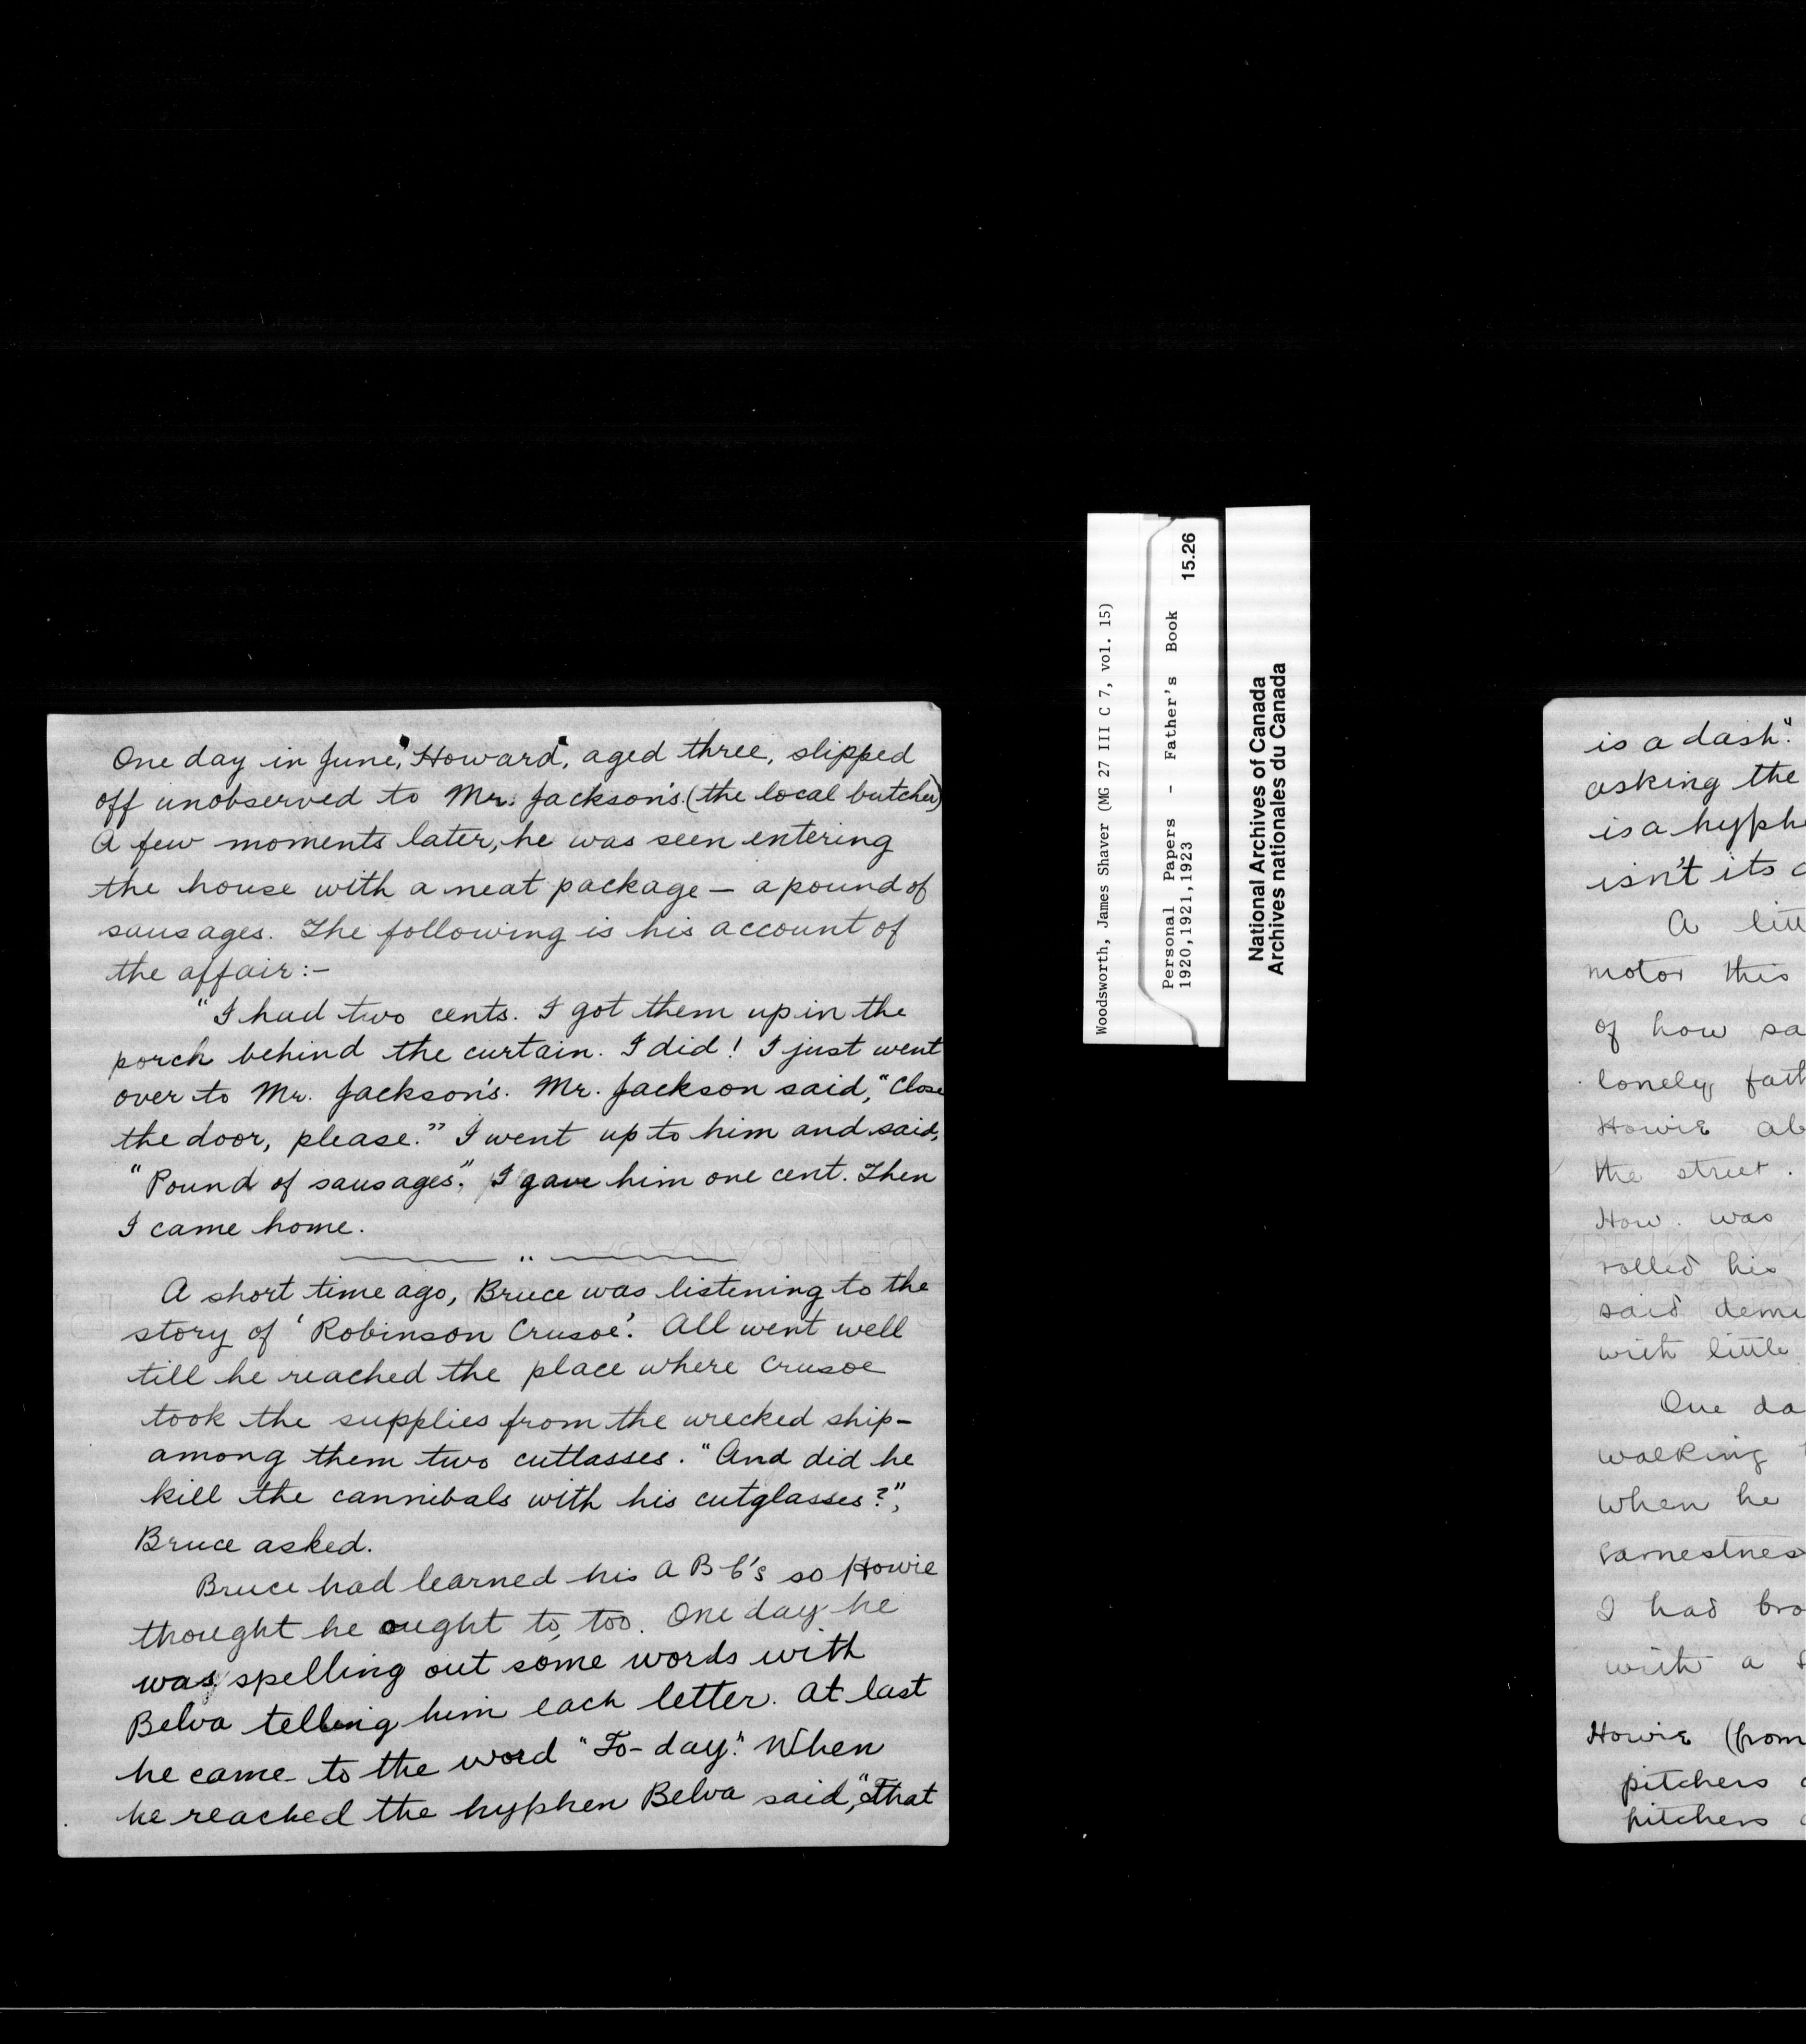 One day in June, "Howard", aged three, slipped
off unobserved to Mr. Jackson's. (the local butcher)
A few moments later, he was seen entering
the house with a neat package — a pound of
sausages. The following is his account of
the affair:-
"I had two cents. I got them up in the
porch behind the curtain. I did! I just went
over to Mr. Jackson's. Mr. Jackson said, "Close
the door, please." I went up to him and said,
"Pound of sausages". I gave him one cent. Then
I came home.
A short time ago, Bruce was listening to the
story of 'Robinson Crusoe'. All went well
till he reached the place where Crusoe
took the supplies from the wrecked ship-
among them two cutlasses. "And did he
kill the cannibals with his cutglasses?",
Bruce asked.
Bruce had learned his A B C's so Howie
thought he ought to, too. One day he
was spelling out some words with
Belva telling him each letter. At last
he came to the word "To-day". When
he reached the hyphen Belva said, "That
Woodsworth, James Shaver (MG 27 III C 7, vol. 15)
Personal Papers - Father's Book 15.26
1920,1921,1923
National Archives of Canada
Archives nationales du Canada
is a dash".
asking the
is a hyphe
isn't its
A litt
motor this
of how sa
lonely fath
Howie ab
the street.
How. was
rolled his
said demu
with little
One da
walking
when he
earnestness
I had bro
with a
Howie (from
pitchers
pitchers